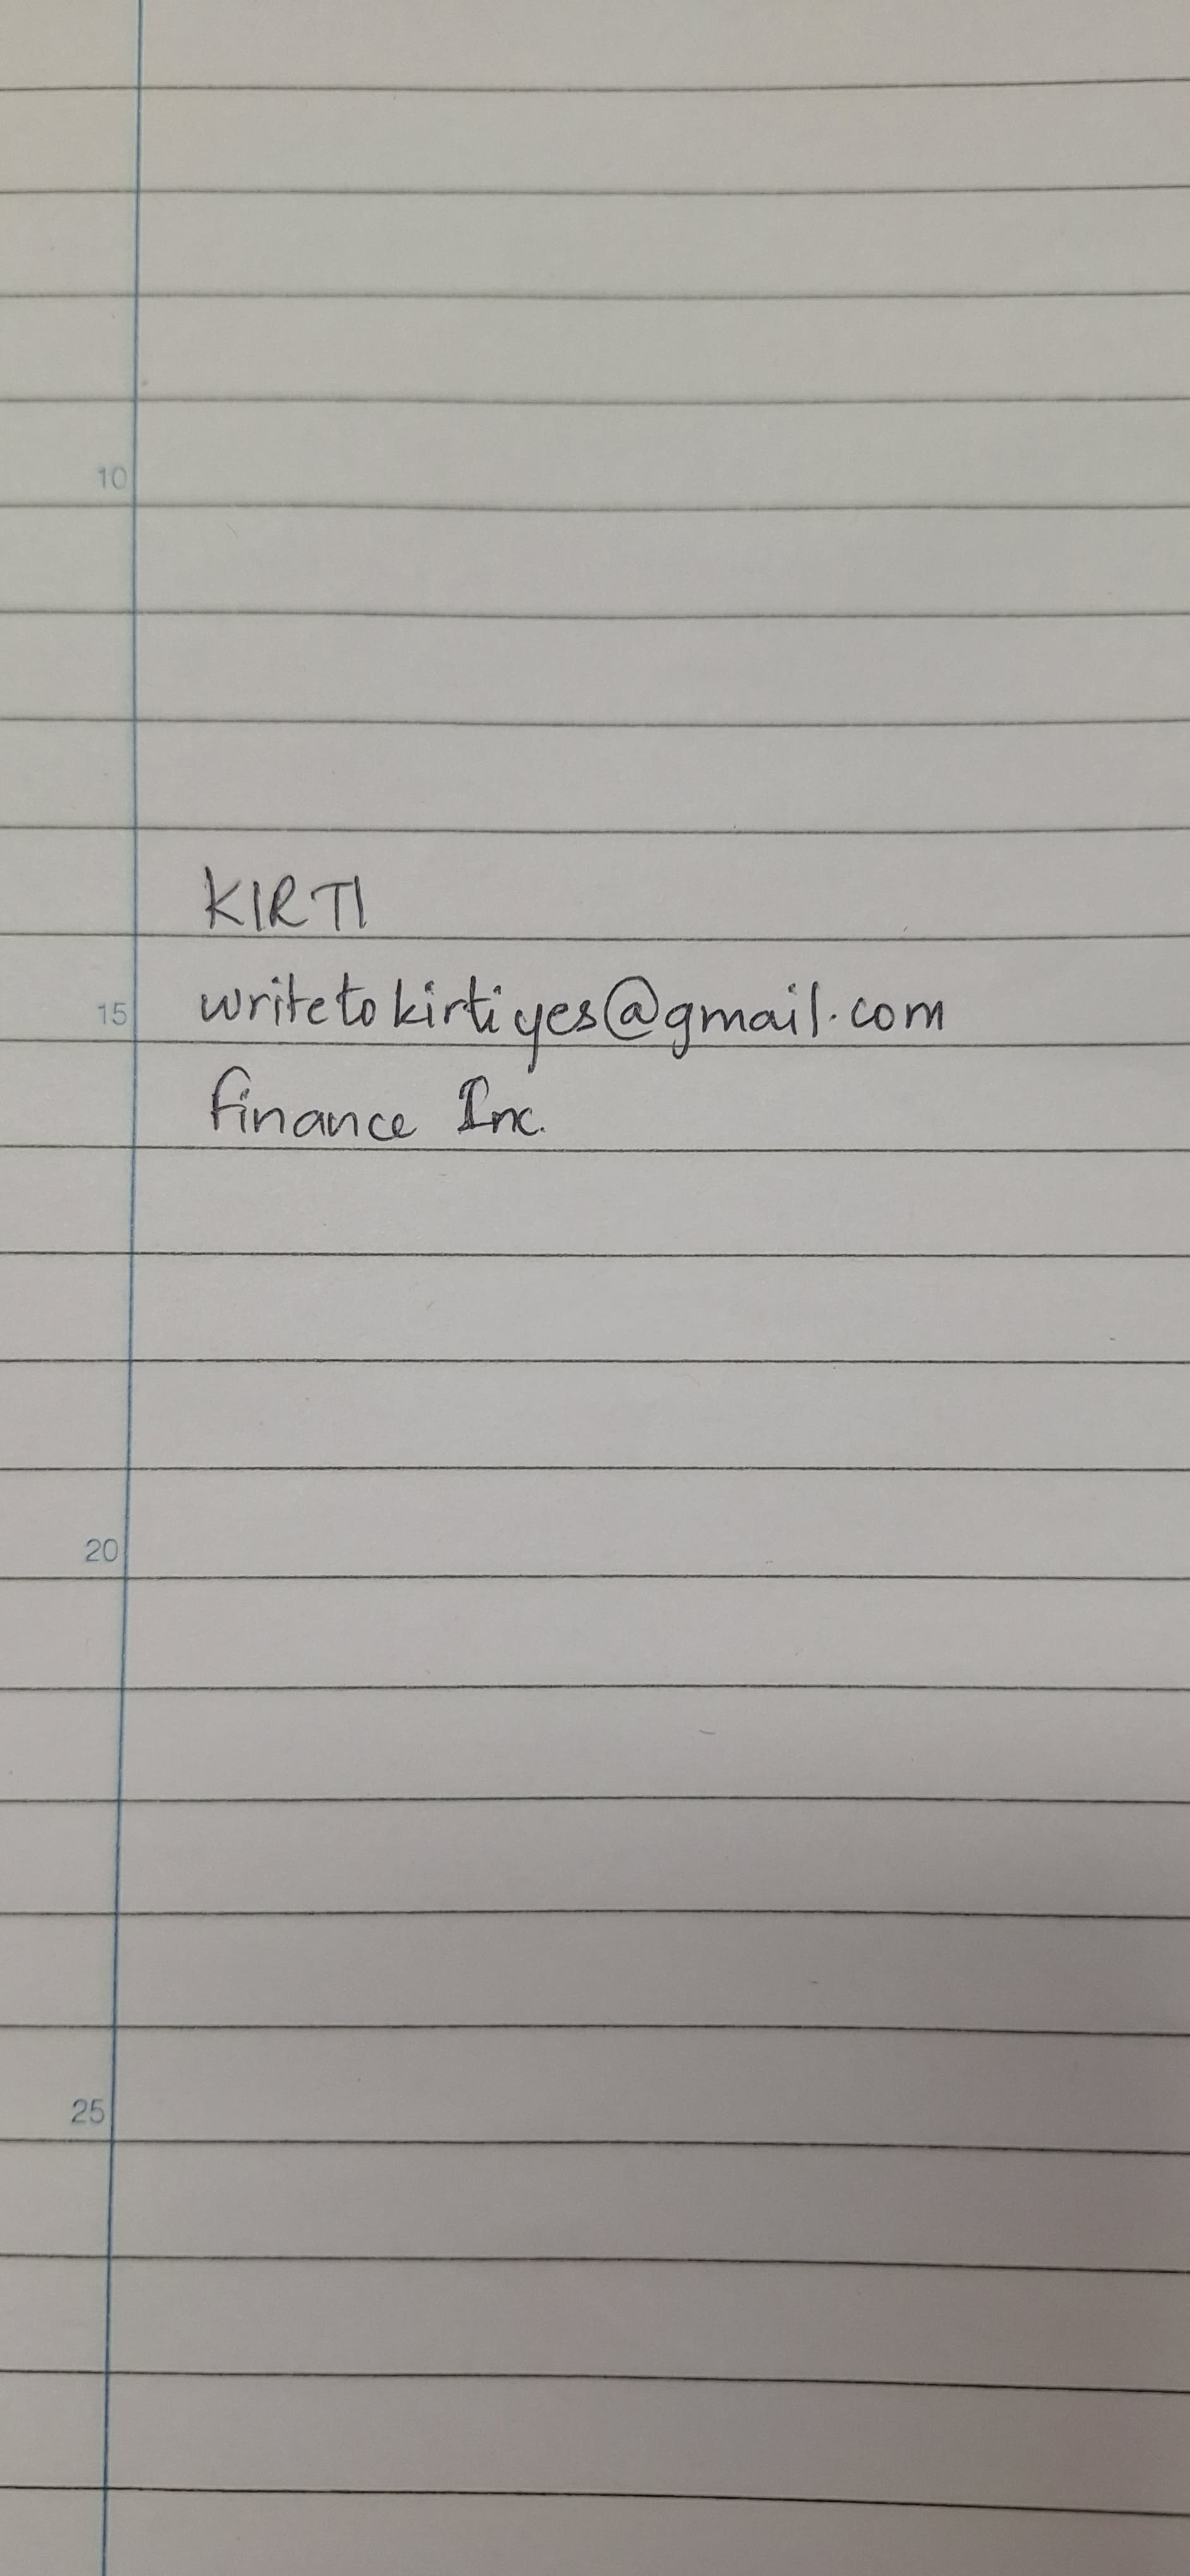 10
KIRTI
15 writetokirtiyes@gmail.com
finance Inc.
20
25